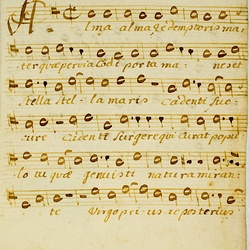 Alma alma Redemptoris ma-
ter quæ pervia Cœli porta ma- nes et
stella stel- la maris cadenti suc-
cure cadenti surgere qui curat popu-
lo tu quæ genuisti natura miran-
te Virgo prius ac posterius